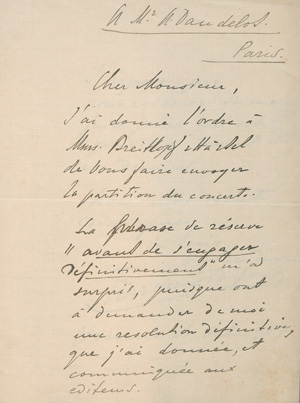 A Mr A Dandelot.
Paris.
Cher Monsieur,
J'ai donné l'ordre à
Mrss. Breitkopf & Härtel
de vous faire envoyer
la partition du concert.
La phrase de réserve
"avant de s'engager
définitivement" m'a
surpris, puisque on t
à demander de moi
une resolution définitive,
que j'ai donnée, et
communiquée aux
editeurs.